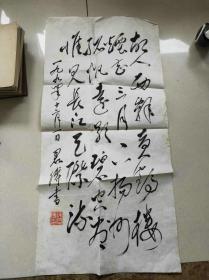 故人西辭黃鶴樓
煙花三月下揚州
孤帆遠影碧空盡
惟見長江天際流
一九九年十月日君書